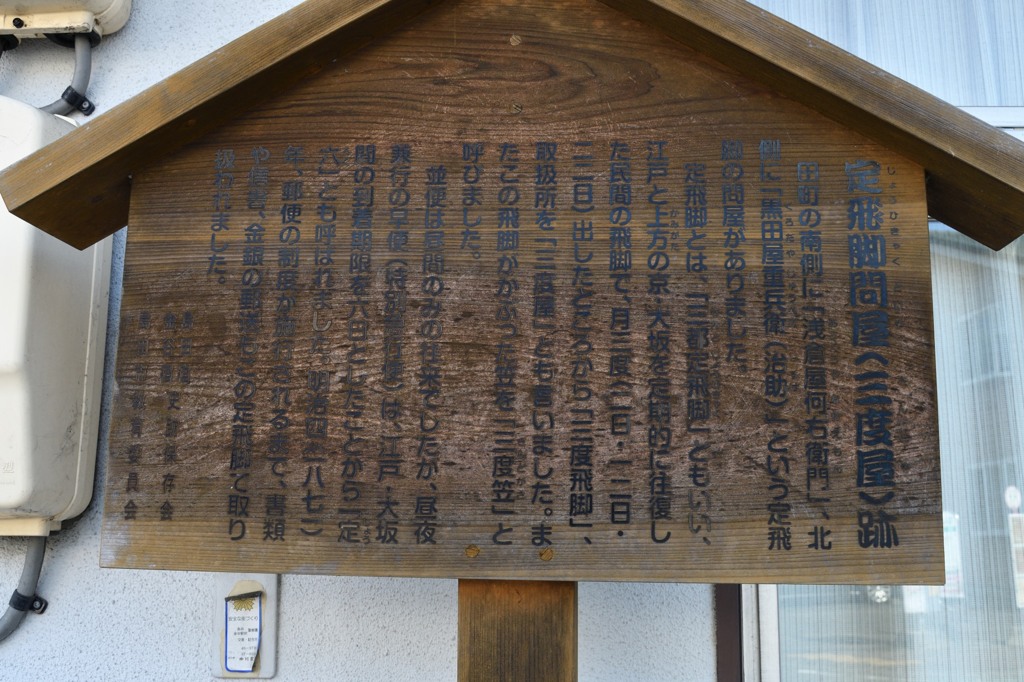 定飛脚問屋(三度屋)跡
田町の南側に「浅倉屋何右衛門」、北
側に「黒田屋重兵衛(治助)」という定飛
脚の問屋がありました。
定飛脚とは、「三都定飛脚」ともいい、
江戸と上方の京・大坂を定期的に往復し
た民間の飛脚で、月三度(二日・一二日・
二二日)出したところから「三度飛脚」、
取扱所を「三度屋」とも言いました。ま
たこの飛脚がかぶった笠を「三度笠」と
呼びました。
並便は昼間のみの往来でしたが、昼夜
兼行の早便(特別急行便)は、江戸・大坂
間の到着期限を六日としたことから「定
六」とも呼ばれました。明治四(一八七一)
年、郵便の制度が施行される まで、書類
や信書、金銀の郵送もこの定飛脚で取り
扱われました。
史跡保存会
教育委員会